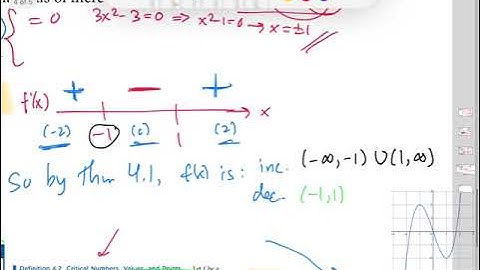 as of there
4 of 5
= 0 3x²-3=0 ⇒ x²-1=0 → x=±1
+ − +
f'(x) x
(-2) -1 (0) 1 (2)
So by thm 4.1, f(x) is: inc. (-∞,-1) ∪ (1,∞)
dec. (-1,1)
Definition 4.2 Critical Numbers, Values, and Points Let f be a